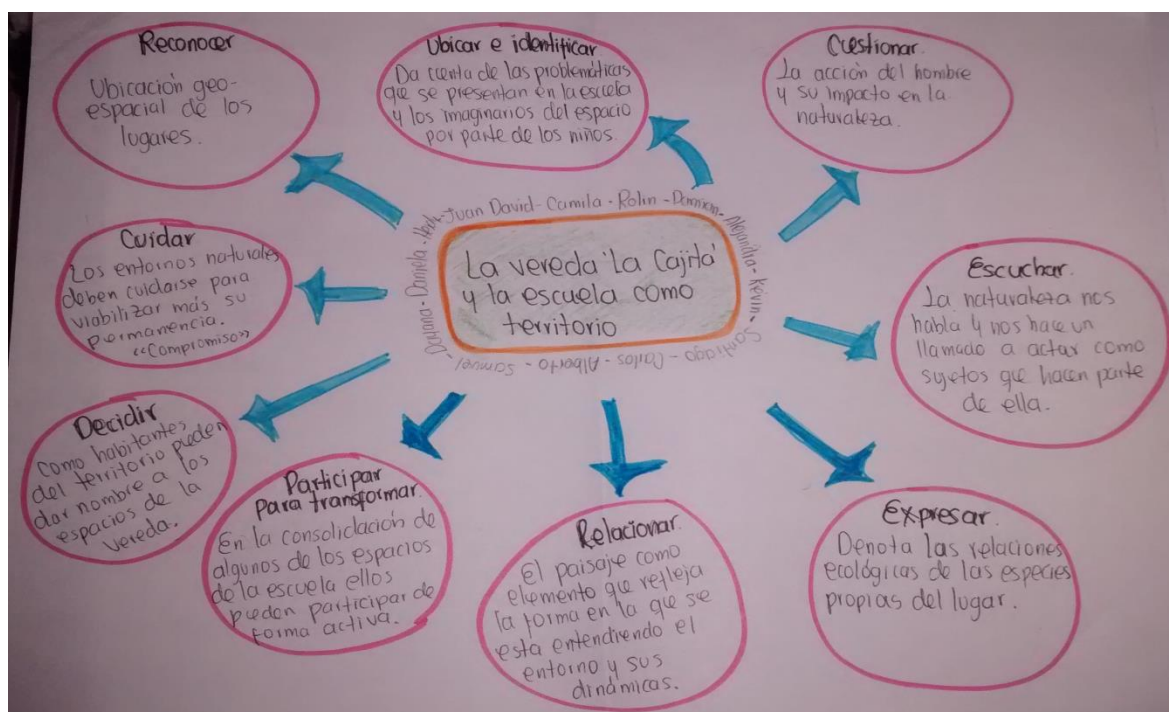 Reconocer
Ubicación geo-
espacial de los
lugares.
Ubicar e identificar
Da cuenta de las problemáticas
que se presentan en la escuela
y los imaginarios del espacio
por parte de los niños.
Cuestionar.
La acción del hombre
y su impacto en la
naturaleza.
Cuidar
Los entornos naturales
deben cuidarse para
viabilizar más su
permanencia.
«Compromiso»
Juan David - Camila - Rolin - Damion - Alejandra - Kevin -
Santiago - Carlos - Alberto - Samuel - Dayana - Daniela -
La vereda 'La Cajita'
y la escuela como
territorio
Escuchar.
La naturaleza nos
habla y nos hace un
llamado a actar como
sujetos que hacen parte
de ella.
Decidir
Como habitantes
del territorio pueden
dar nombre a los
espacios de la
vereda.
Participar
para transformar.
En la consolidación de
algunos de los espacios
de la escuela ellos
pueden participar de
forma activa.
Relacionar.
El paisaje como
elemento que refleja
la forma en la que se
esta entendiendo el
entorno y sus
dinámicas.
Expresar.
Denota las relaciones
ecológicas de las especies
propias del lugar.